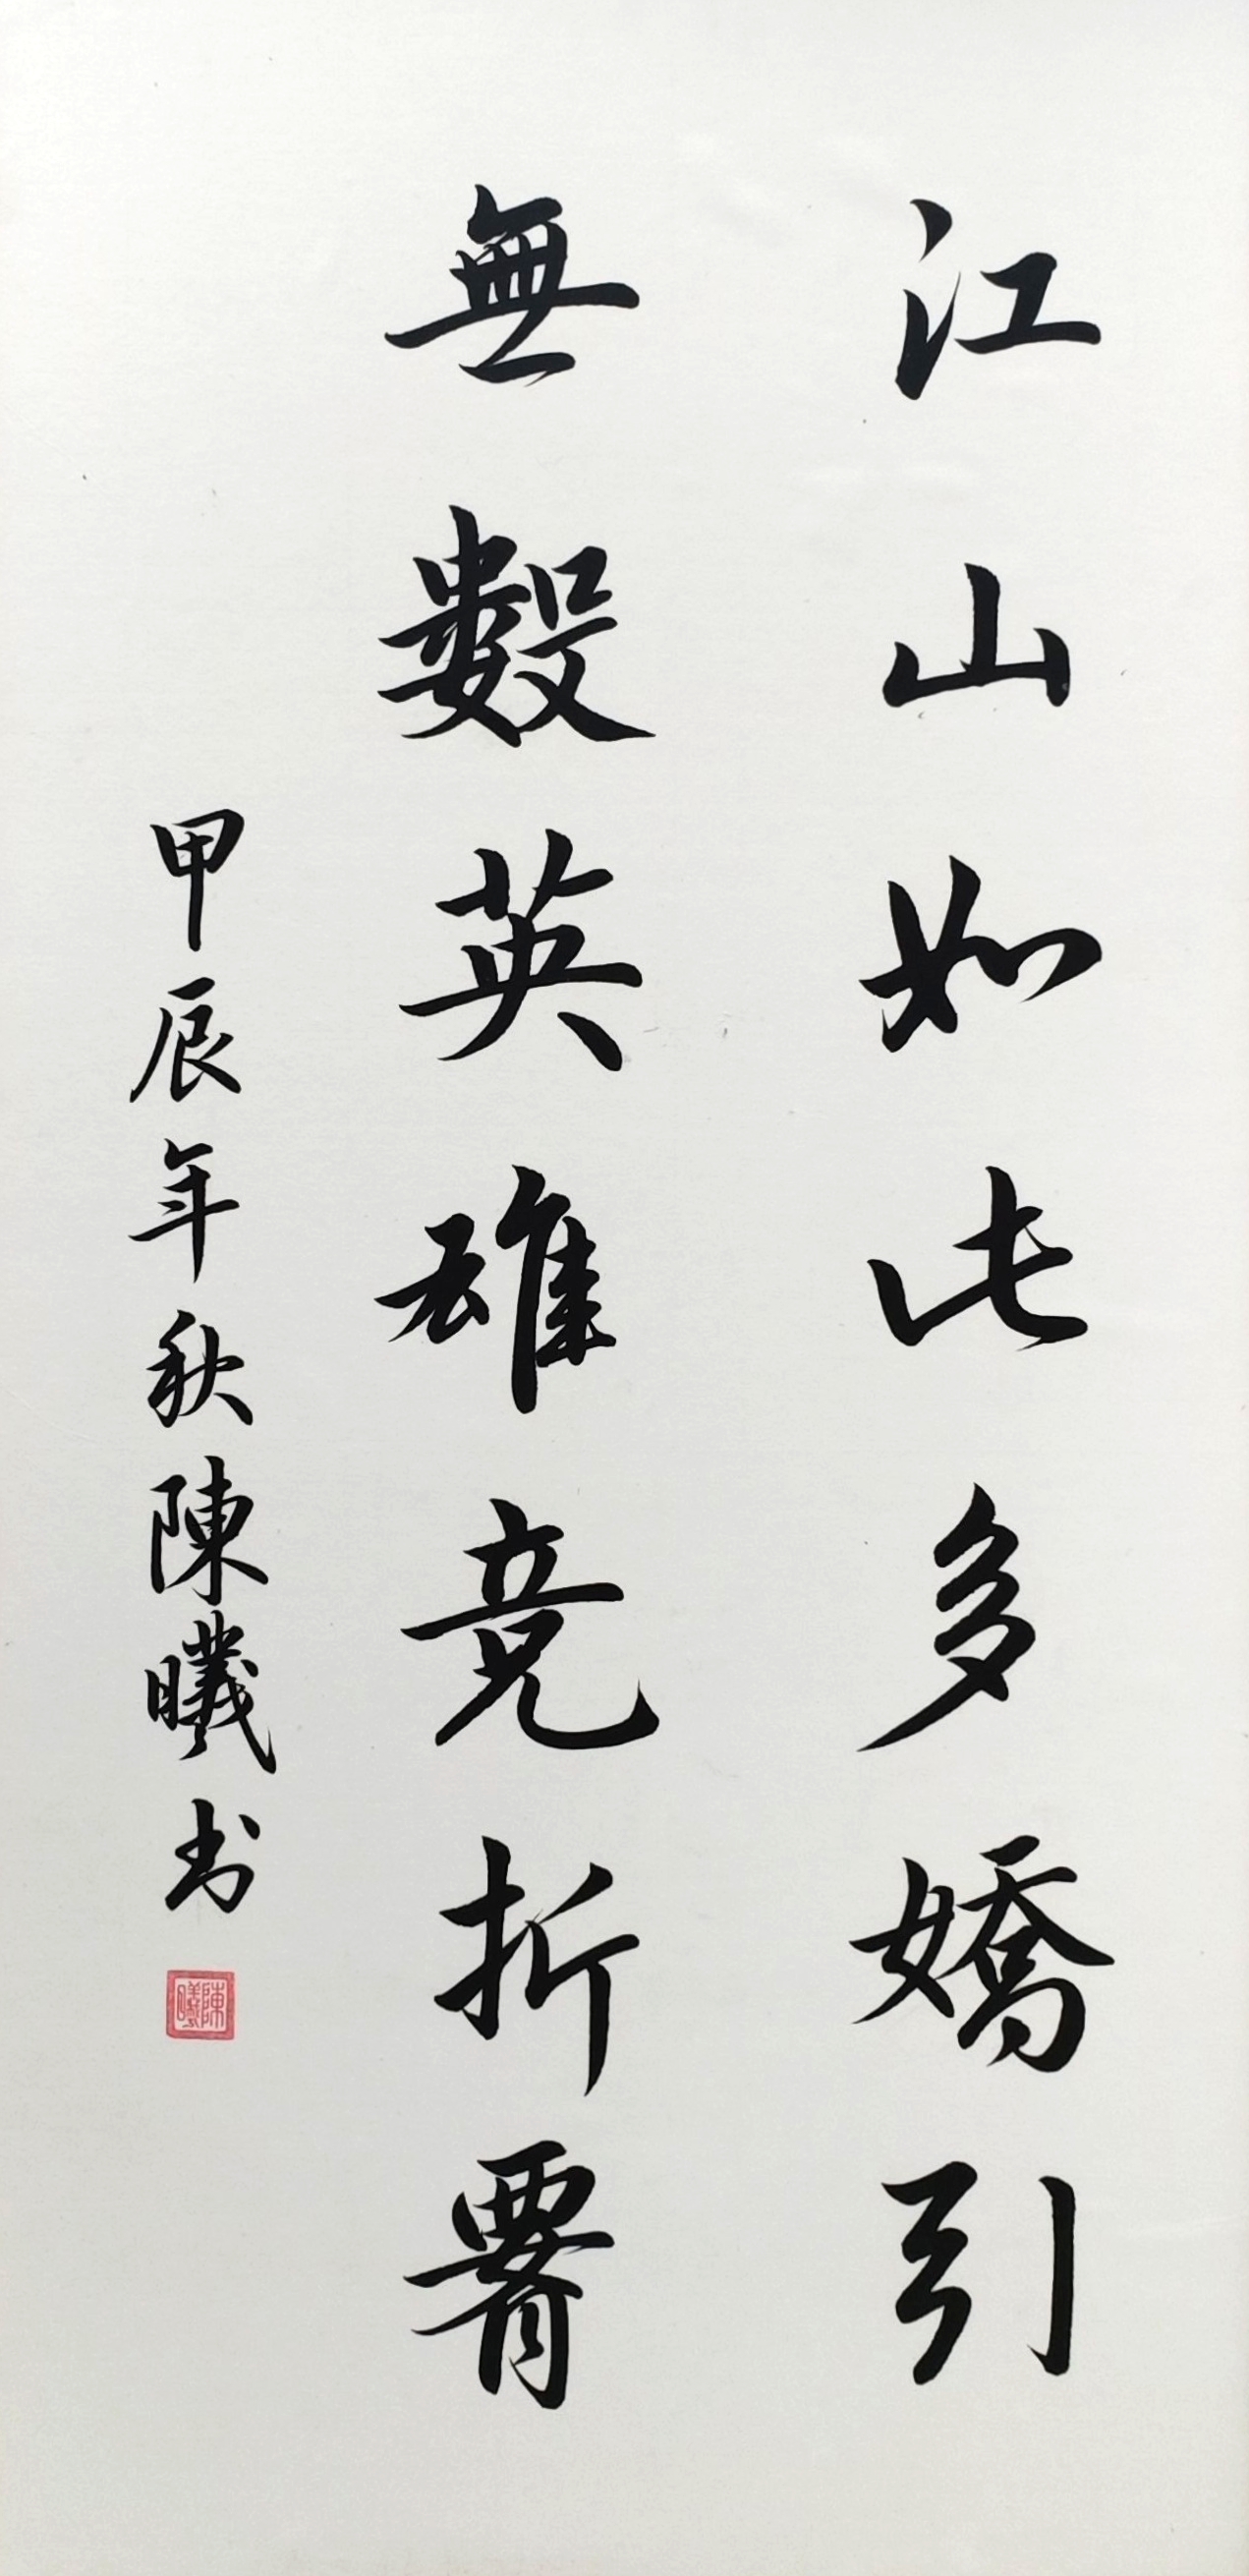 江山如此多嬌引
無數英雄竞折腰
甲辰年秋陳曦书
陳曦